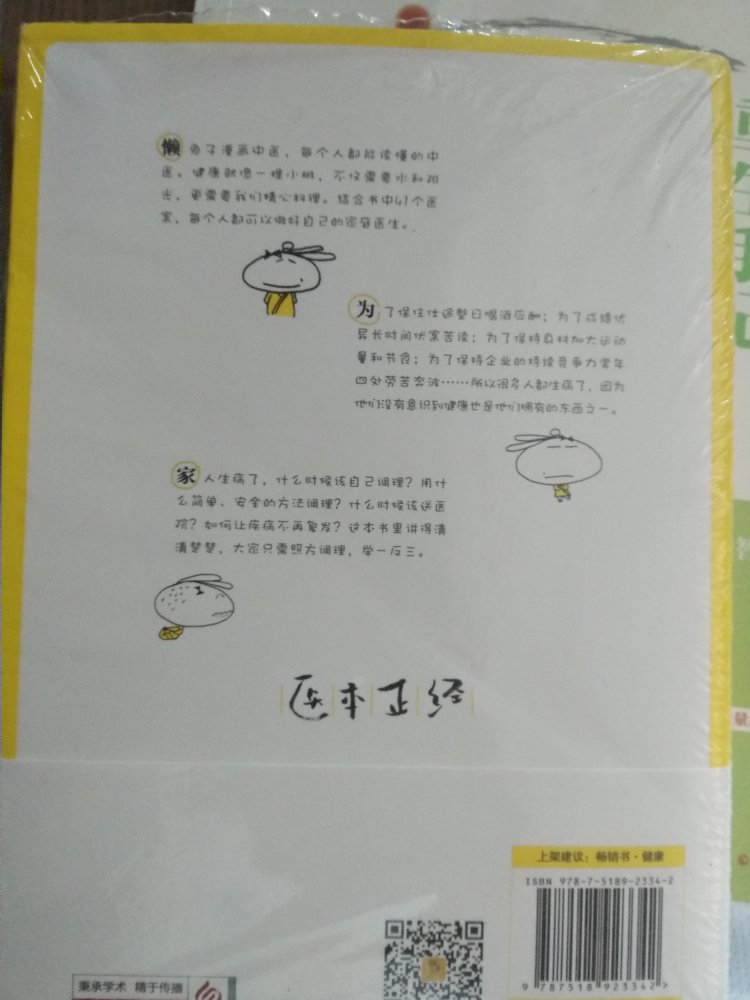 懒兔子漫画中医，每个人都能读懂的中
医。健康就像一棵小树，不仅需要水和阳
光，更需要我们精心料理。结合书中41个医
案，每个人都可以做好自己的家庭医生。
为了保住仕途整日喝酒应酬；为了成绩优
异长时间伏案苦读；为了保持身材加大运动
量和节食；为了保持企业的持续竞争力常年
四处劳苦奔波……所以很多人都生病了，因为
他们没有意识到健康也是他们拥有的东西之一。
家人生病了，什么时候该自己调理？用什
么简单、安全的方法调理？什么时候该送医
院？如何让疾病不再复发？这本书里讲得清
清楚楚，大家只需照方调理，举一反三。
医本正经
上架建议：畅销书·健康
ISBN 978-7-5189-2334-2
9 787518 923342 >
秉承学术 精于传播